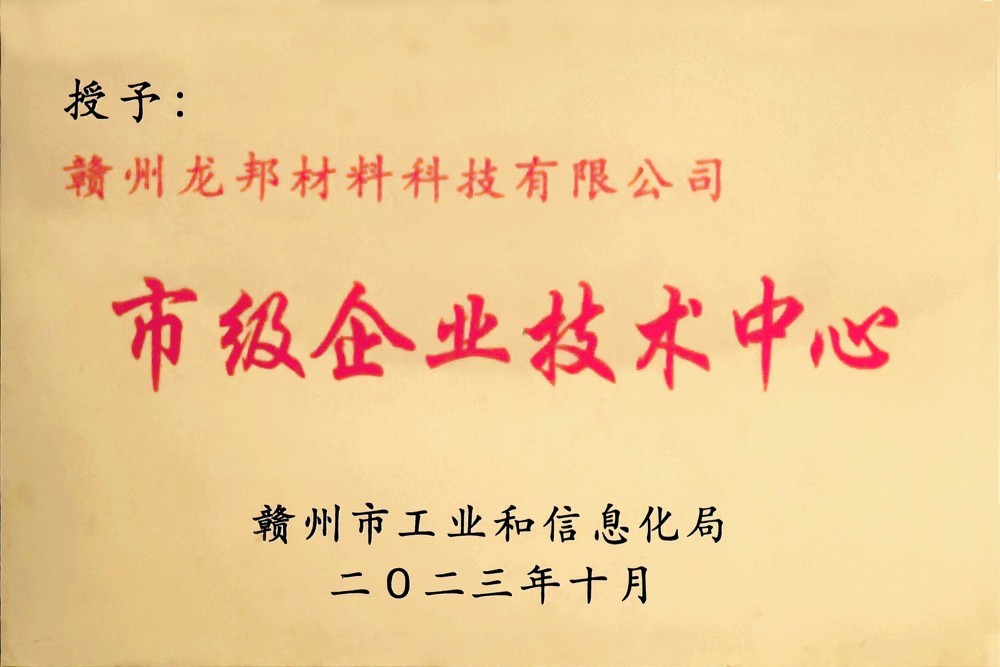 授予：
赣州龙邦材料科技有限公司
市级企业技术中心
赣州市工业和信息化局
二〇二三年十月